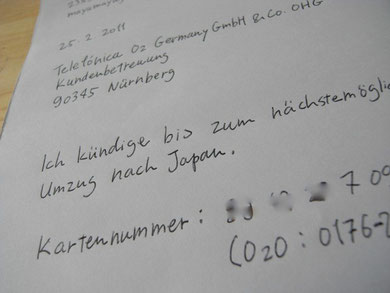 25. 2. 2011
Telefónica O2 Germany GmbH & Co. OHG
Kundenbetreuung
90345 Nürnberg
Ich kündige bis zum
Umzug nach Japan.
Kartennummer: 7 09
(O2O: 0176-